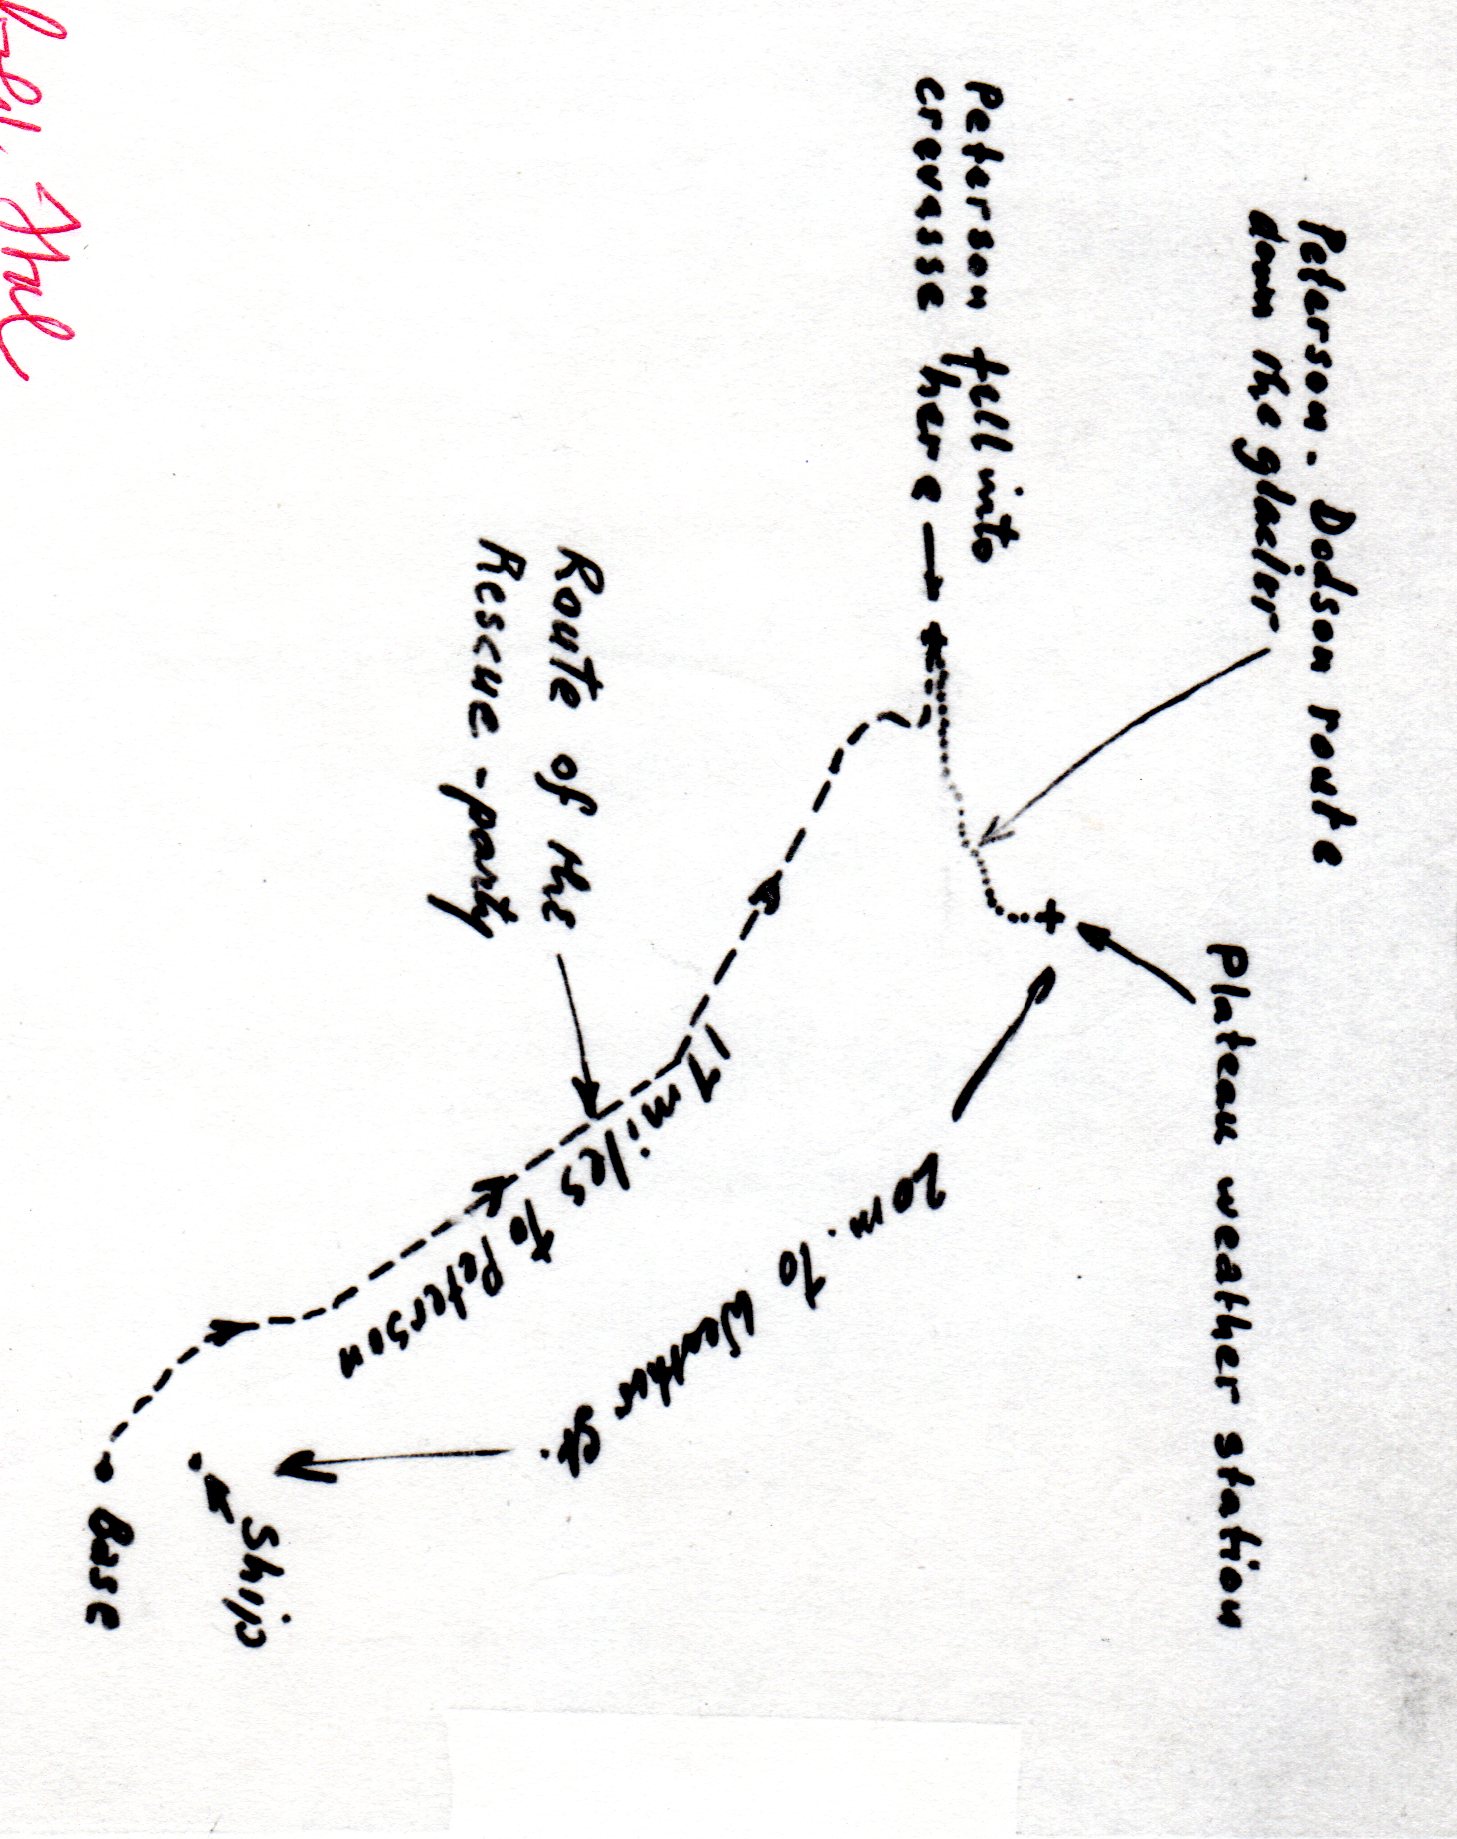 Peterson - Dodson route
down the glacier
Plateau weather station
Peterson fell into
crevasse here
20 m. to Weather St.
17 miles to Peterson
Route of the
Rescue-party
Ship
Base
The